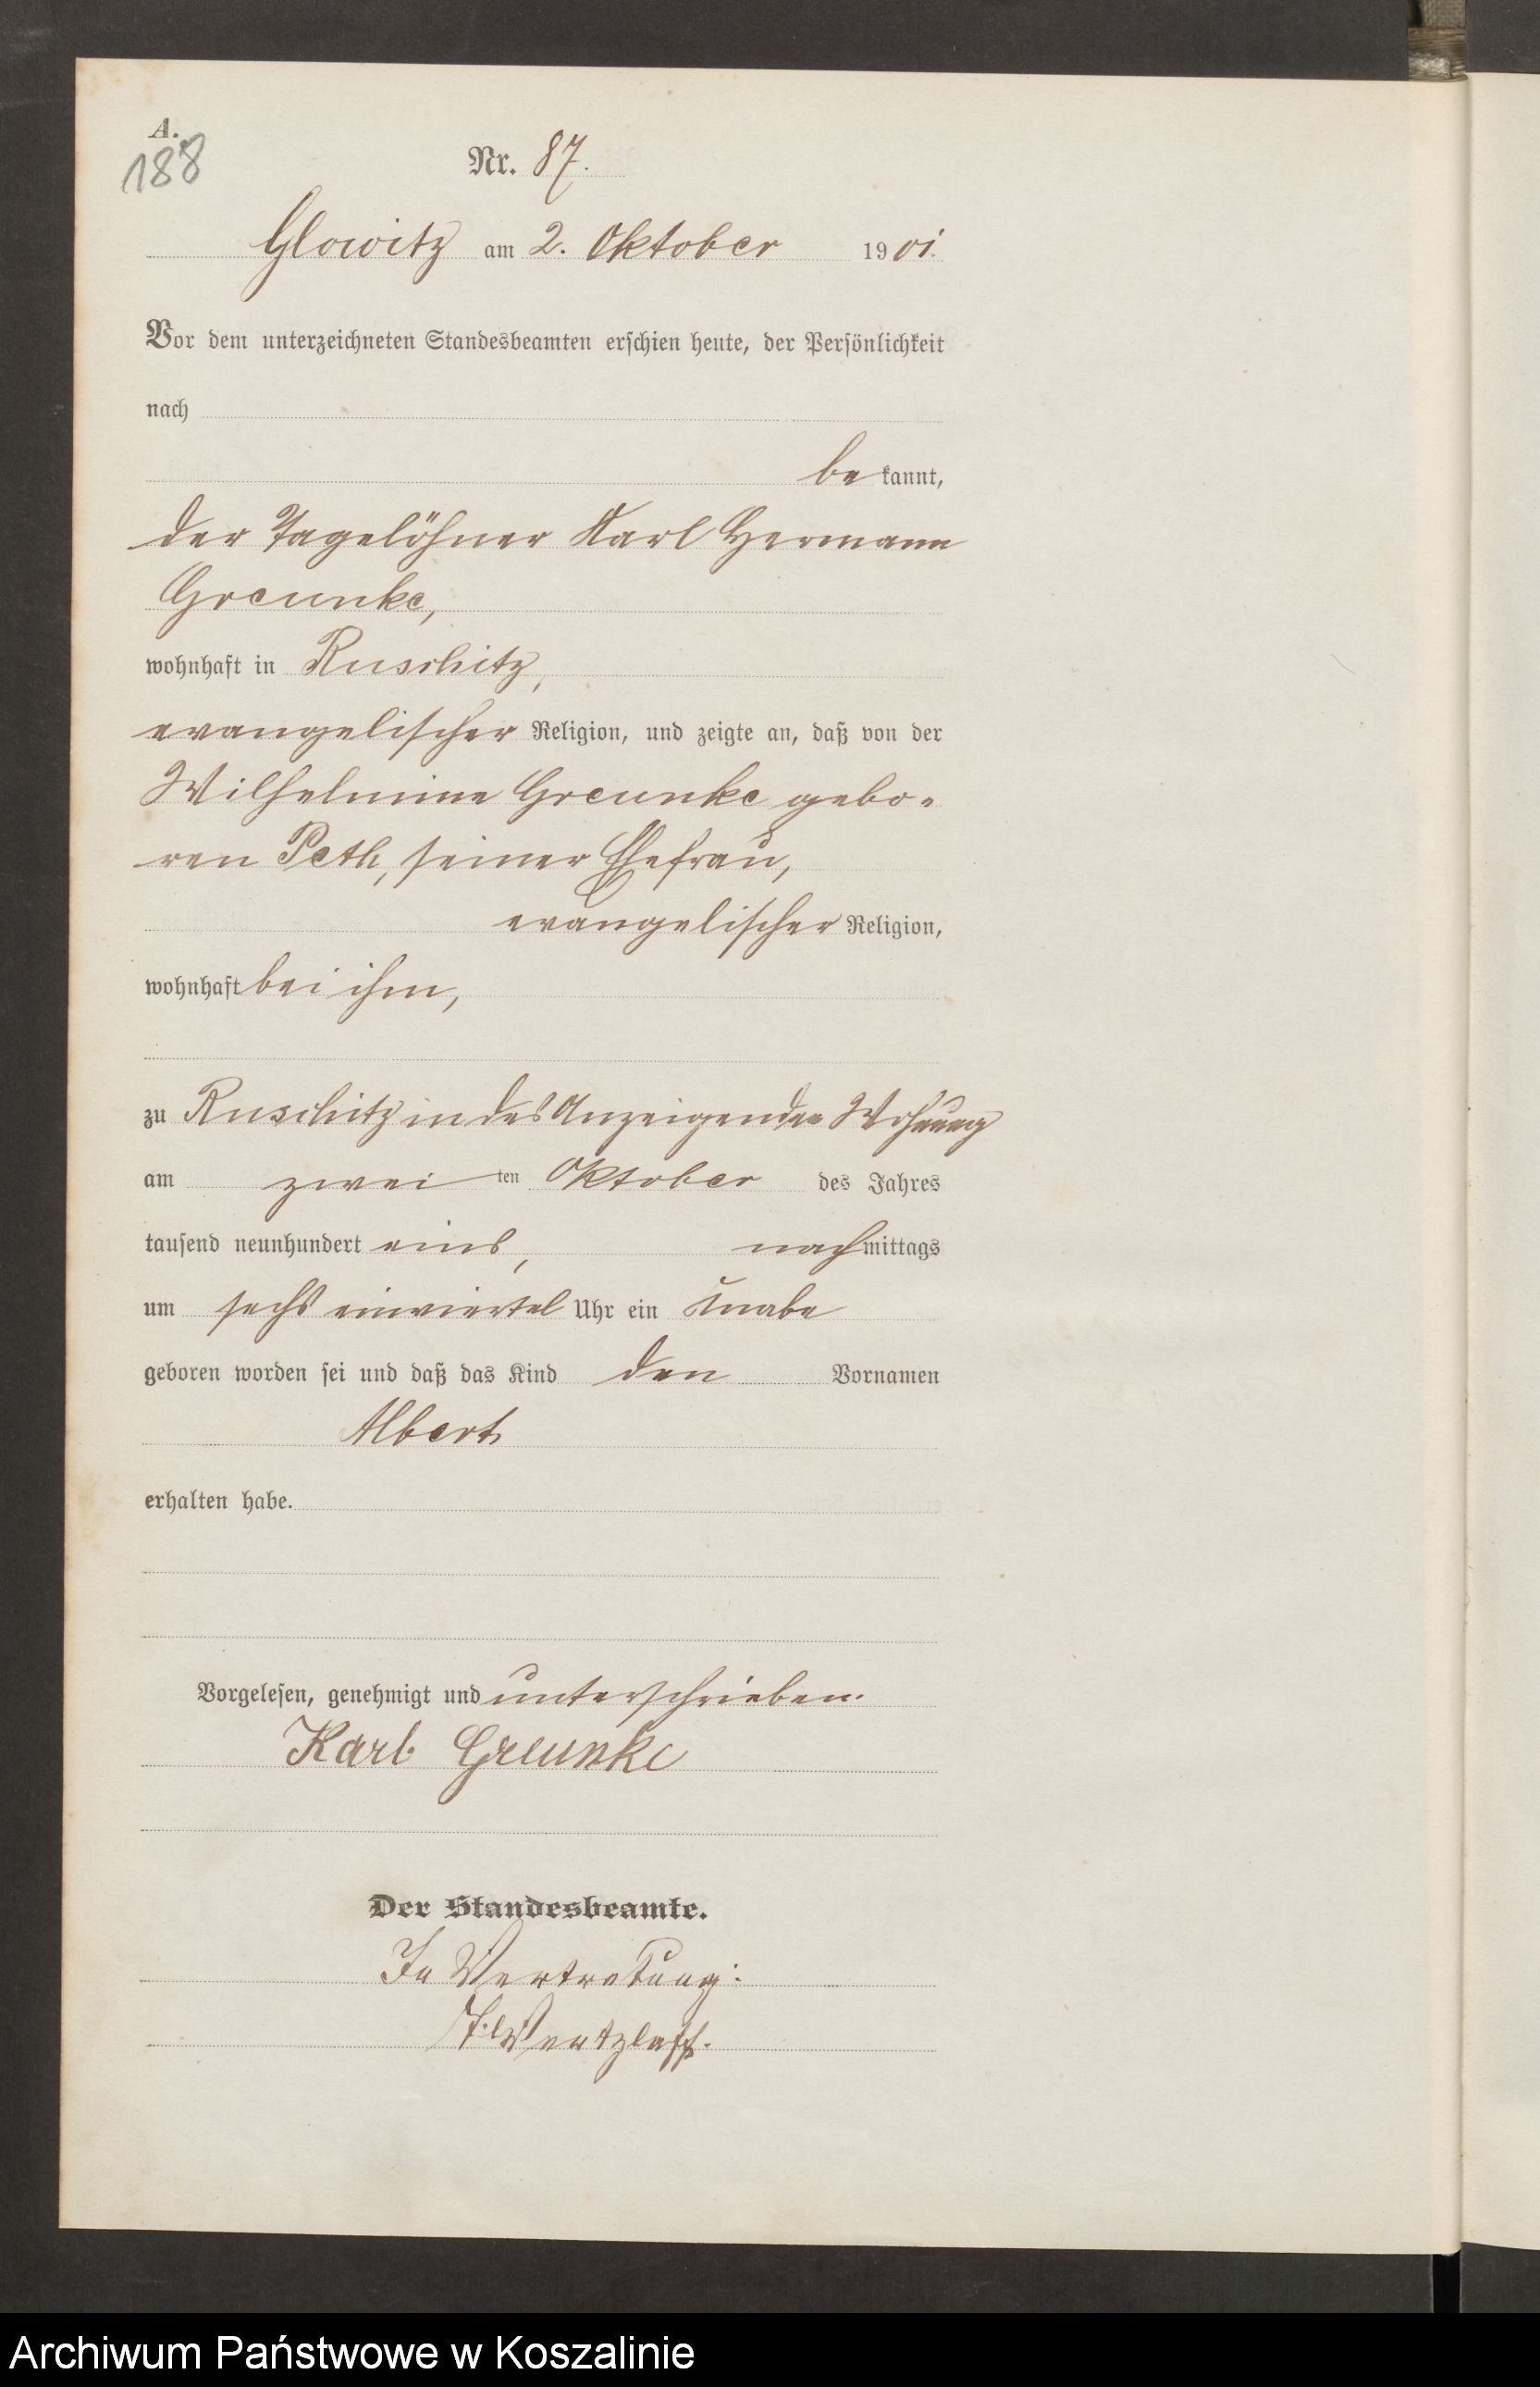 A.
188
Nr. 87.
Glowitz am 2. Oktober 1901.
Vor dem unterzeichneten Standesbeamten erschien heute, der Persönlichkeit
nach
bekannt,
der Tagelöhner Karl Hermann
Greunke,
wohnhaft in Ruschitz,
evangelischer Religion, und zeigte an, daß von der
Wilhelmine Greunke gebo-
ren Peth, seiner Ehefrau,
evangelischer Religion,
wohnhaft bei ihm,
zu Ruschitz in des Anzeigenden Wohnung
am zweiten Oktober des Jahres
tausend neunhundert eins, nachmittags
um sechs einviertel Uhr ein Knabe
geboren worden sei und daß das Kind den Vornamen
Albert
erhalten habe.
Vorgelesen, genehmigt und unterschrieben.
Karl Greunke
Der Standesbeamte.
In Vertretung:
Wentzlaff.
Archiwum Państwowe w Koszalinie